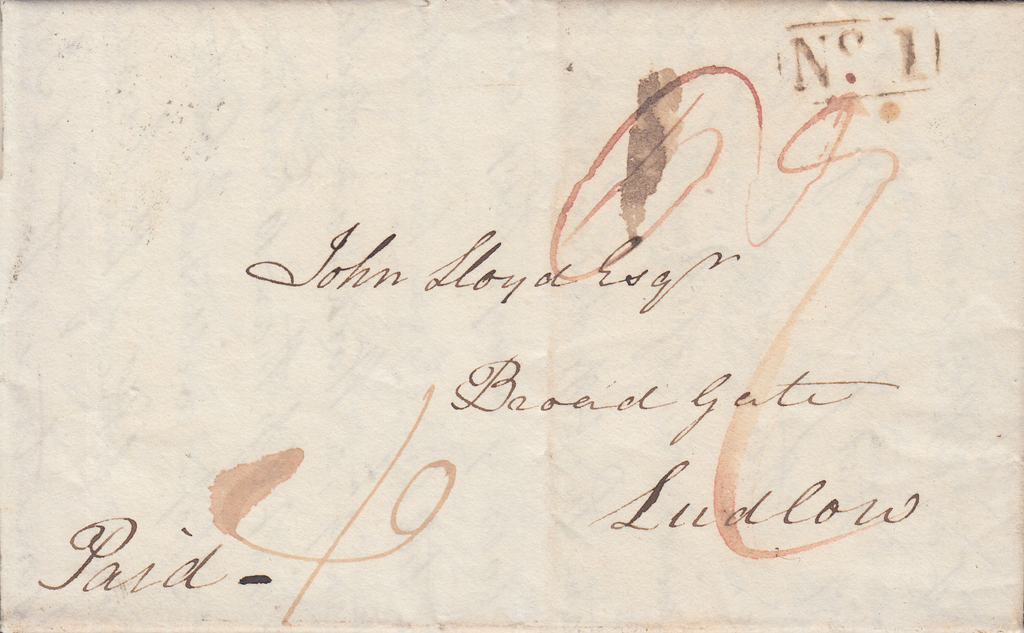 No. 1
John Lloyd Esqr
Broad Gate
Ludlow
Paid -